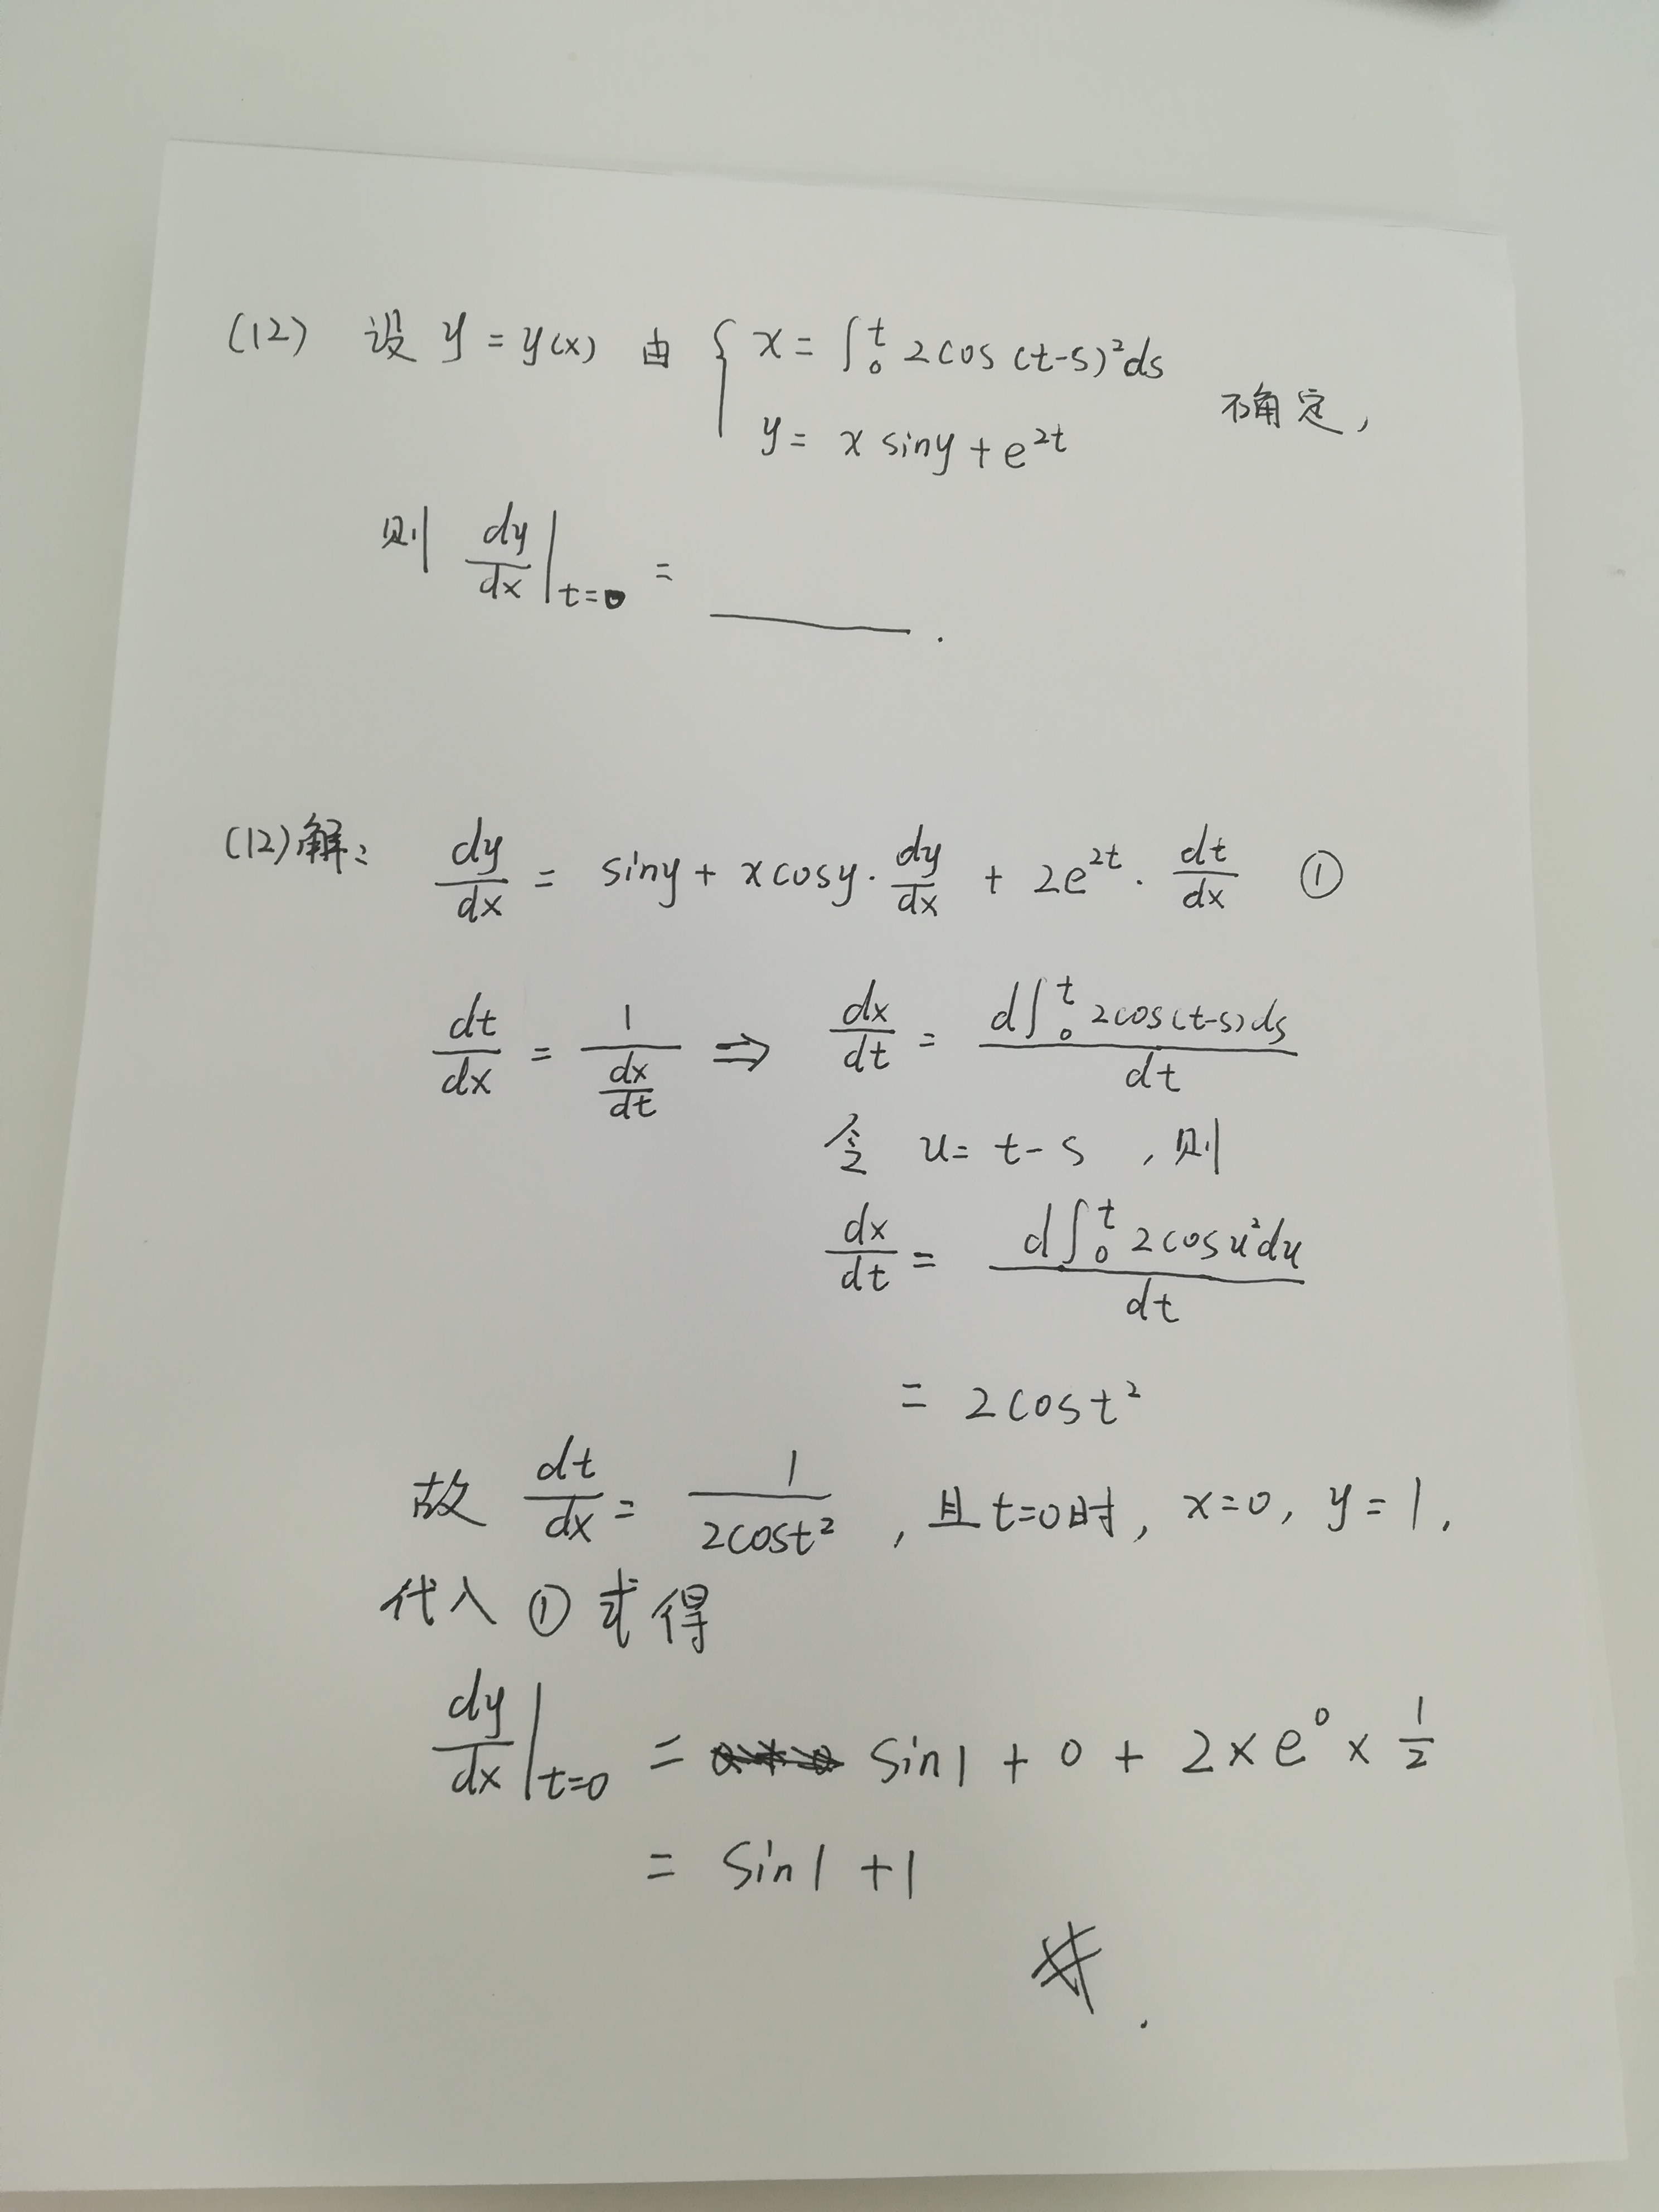 (12) 设 y = y(x) 由 { x = ∫₀ᵗ 2cos(t-s)²ds
y = x siny + e^{2t} 不确定,
则 dy/dx |_{t=0} = ______ .
(12)解: dy/dx = siny + x cosy · dy/dx + 2e^{2t} · dt/dx ①
dt/dx = 1/(dx/dt) ⇒ dx/dt = d∫₀ᵗ 2cos(t-s)ds / dt
令 u = t - s , 则
dx/dt = d∫₀ᵗ 2cosu²du / dt
= 2cost²
故 dt/dx = 1/(2cost²) , 且 t=0时, x=0, y=1.
代入 ① 式得
dy/dx |_{t=0} = sin1 + 0 + 2×e⁰×1/2
= sin1 + 1
#.